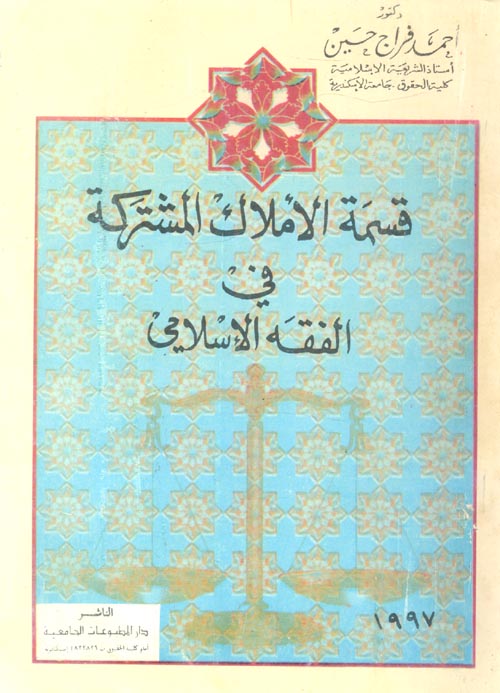 دكتور
أحمد فراج حسين
أستاذ الشريعة الإسلامية
كلية الحقوق . جامعة الإسكندرية
قسمة الأملاك المشتركة
في
الفقه الإسلامي
١٩٩٧
الناشر
دار المطبوعات الجامعية
أمام كلية الحقوق ت